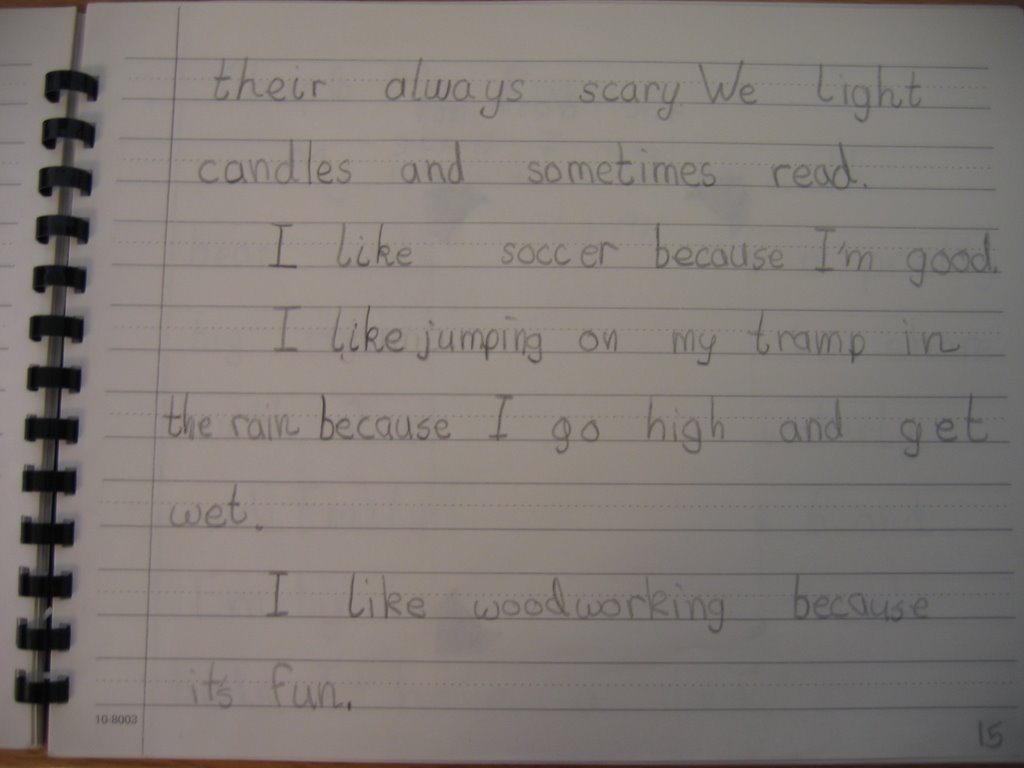 their always scary We light
candles and sometimes read.
I like soccer because I'm good.
I like jumping on my tramp in
the rain because I go high and get
wet.
I like woodworking because
it's fun.
10-8003
15